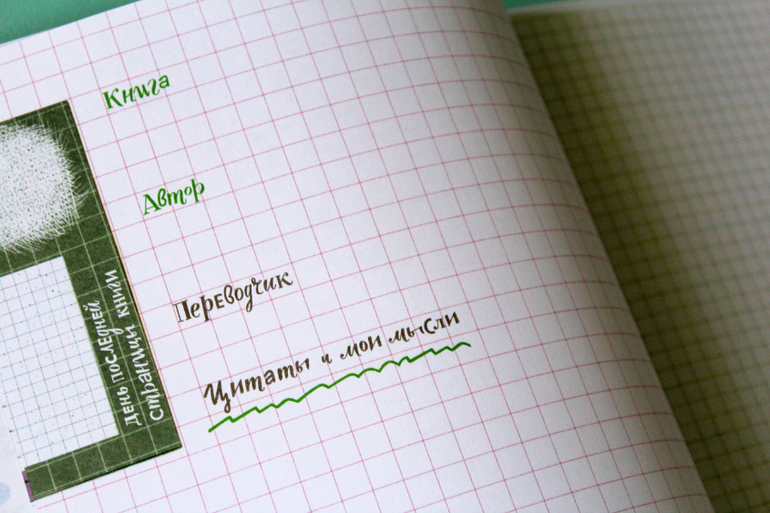 Книга
Автор
Переводчик
Цитаты и мои мысли
День последней
страницы книги